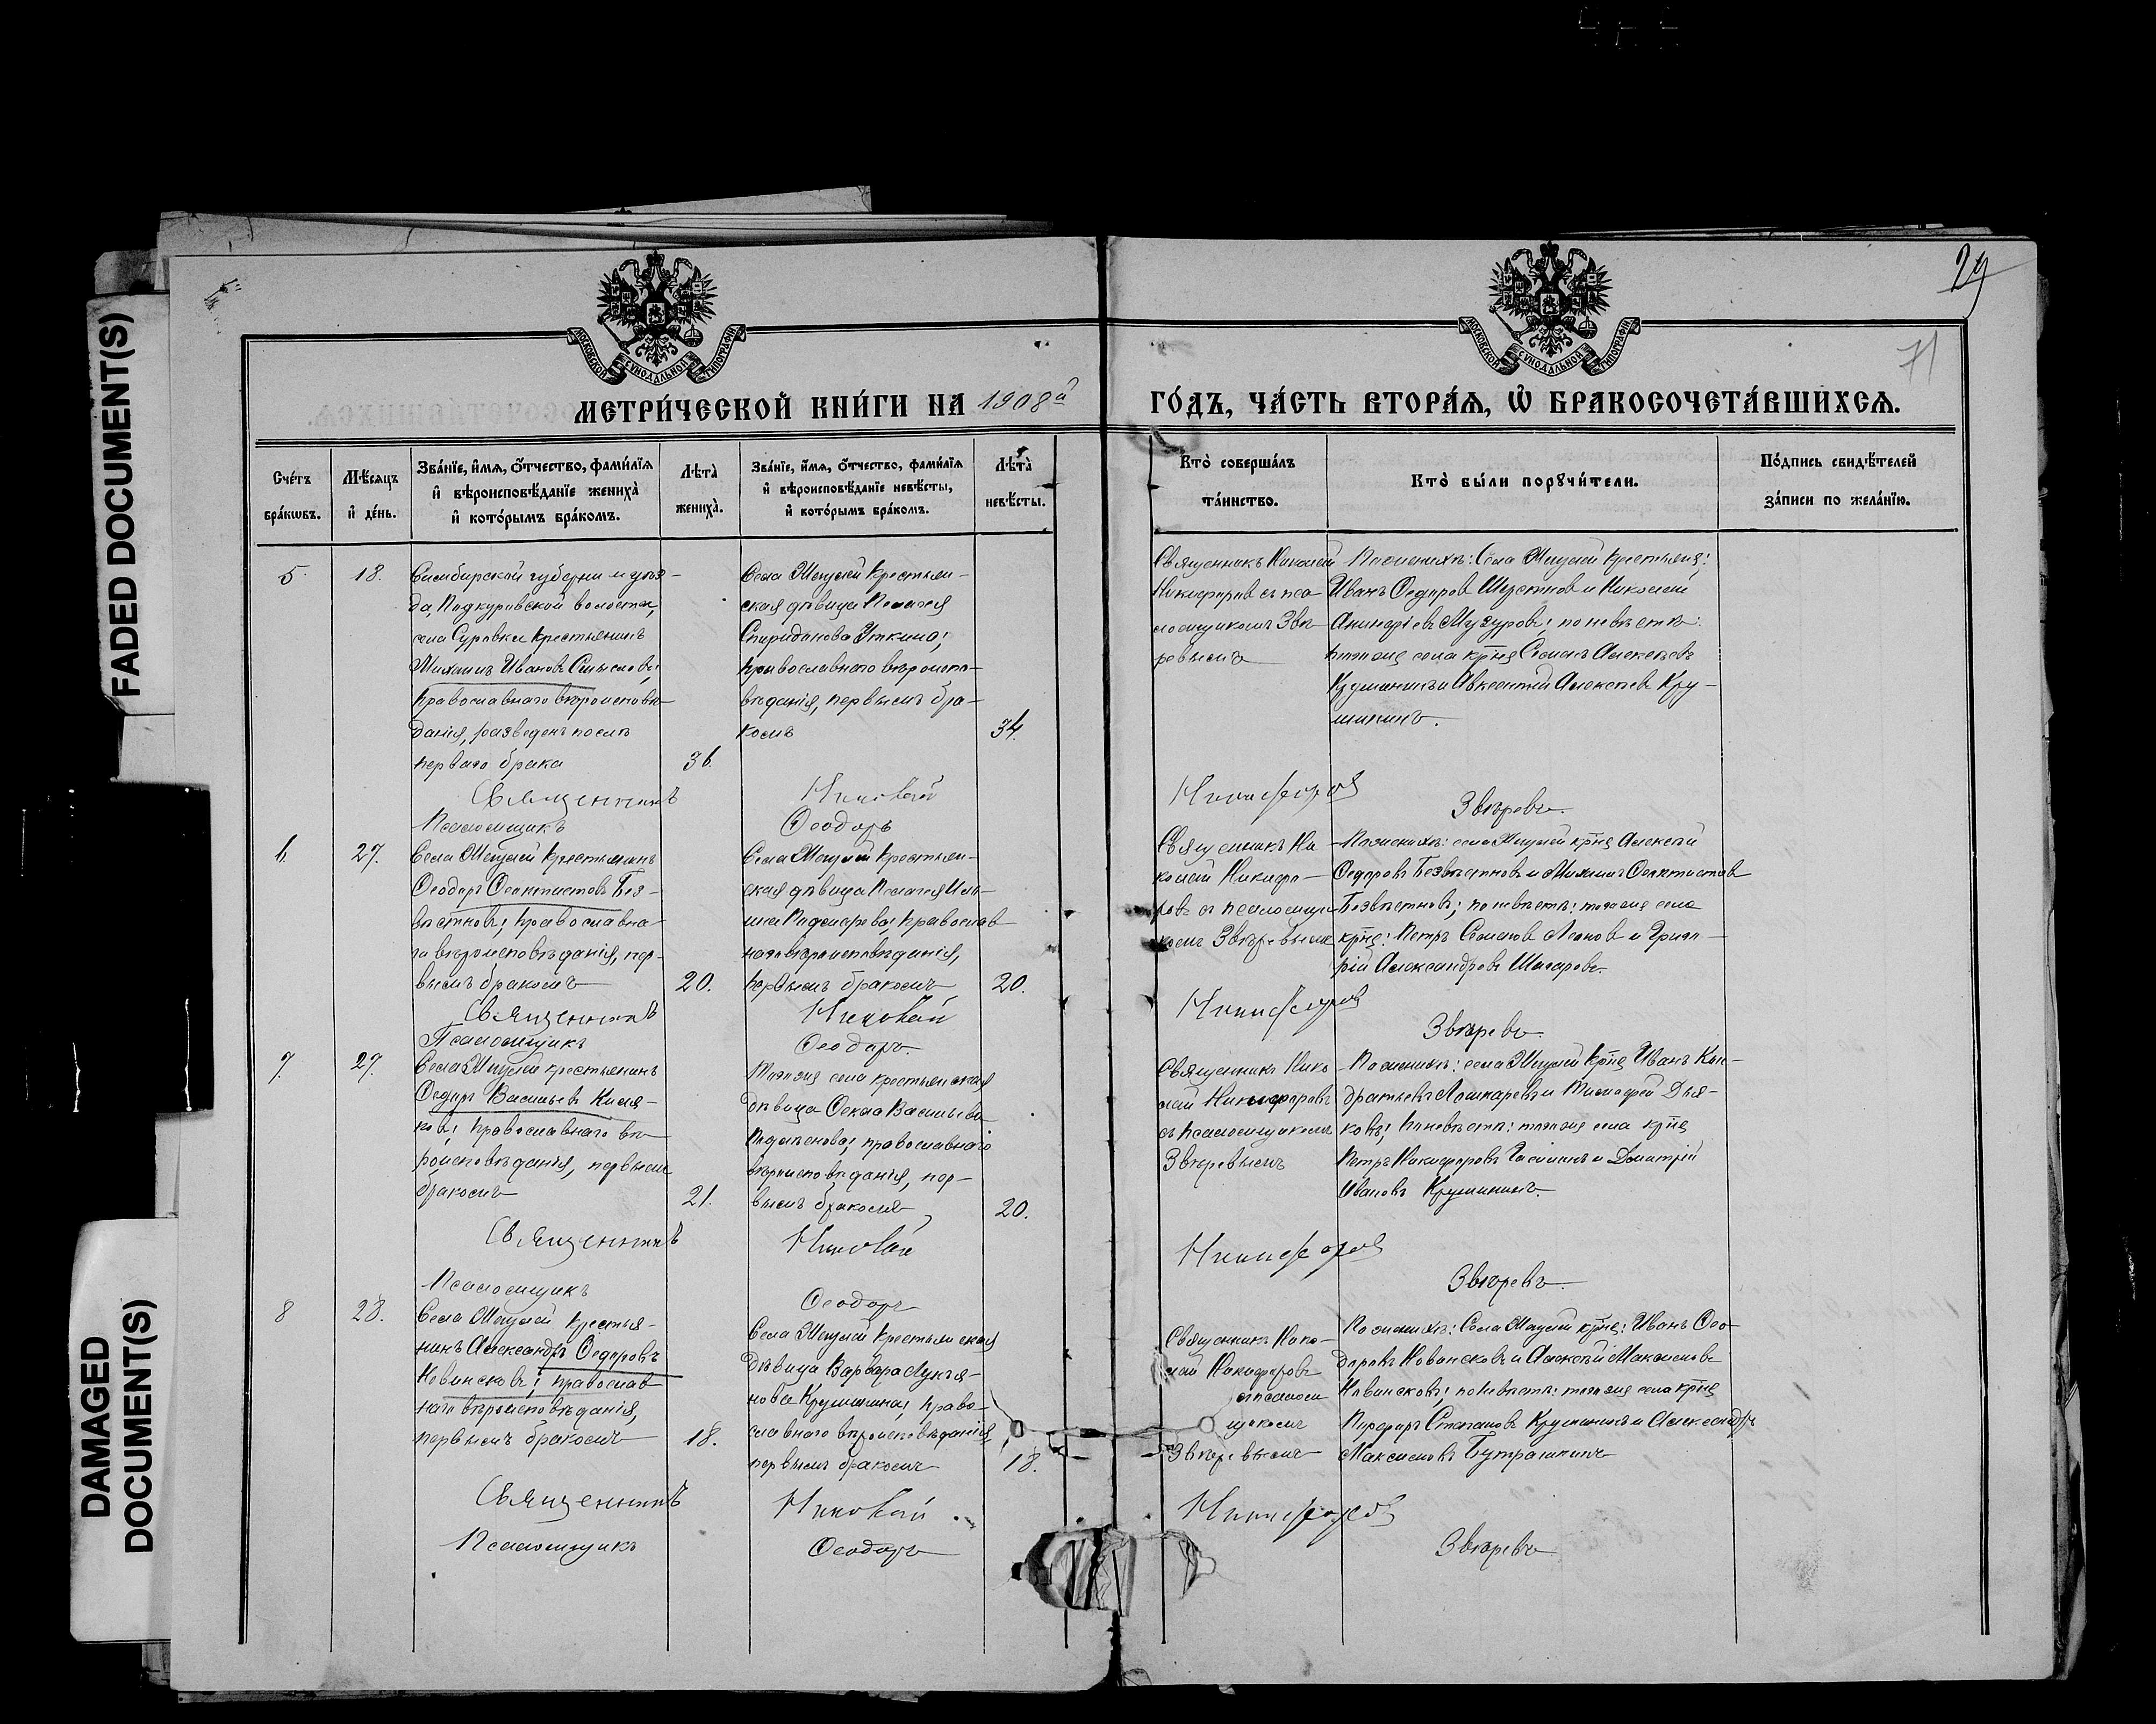 FADED DOCUMENT(S)
DAMAGED
DOCUMENT(S)
29
71
МОСКОВСКОЙ СУНОДАЛЬНОЙ ТИПОГРАФІИ
МОСКОВСКОЙ СУНОДАЛЬНОЙ ТИПОГРАФІИ
МЕТРИ́ЧЕСКОЙ КНИ́ГИ НА 1908й ГО́ДЪ, ЧА́СТЬ ВТОРА́Я, Ѡ҆ БРАКОСОЧЕТА́ВШИХСЯ.
Сче́тъ
бра́кѡвъ.
Мѣ́сяцъ
и҆ де́нь.
Зва́нїе, и҆́мя, о҆́тчество, фами́лїя
и҆ вѣроисповѣ́данїе жениха̀
и҆ кото́рымъ бра́комъ.
Лѣта̀
жениха̀.
Зва́нїе, и҆́мя, о҆́тчество, фами́лїя
и҆ вѣроисповѣ́данїе невѣ́сты,
и҆ кото́рымъ бра́комъ.
Лѣта̀
невѣ́сты.
Кто̀ соверша́лъ
та́инство.
Кто̀ бы́ли порꙋчи́тели.
По́дпись свидѣ́телей
за́писи по жела́нїю.
5.
18.
Симбирской губерніи и уѣз-
да, Подкуровской волости,
села Суровки крестьянинъ
Михаилъ Ивановъ Смысловъ,
православнаго вѣроисповѣ-
данія, разведенъ послѣ
перваго брака
36.
крестьян-
ская дѣвица Пелагея
Спиридонова Уткина;
православнаго вѣроиспо-
вѣданія, первымъ бра-
комъ
34.
Священникъ Николай
Никифоровъ съ пса-
ломщикомъ Звѣ-
ревымъ
По женихѣ: Села крестьяне:
Иванъ Ѳедоровъ и Николай
по невѣстѣ:
тогоже села крⷭ҇не Семенъ Алексѣевъ
и Авксентій Алексѣевъ Кру-
шининъ.
Священникъ Николай Никифоровъ
Псаломщикъ Ѳеодоръ Звѣревъ.
6.
27.
крестьянинъ
Ѳеодоръ Ѳеоктистовъ Без-
вѣстновъ; православна-
го вѣроисповѣданія, пер-
вымъ бракомъ
20.
крестьян-
ская дѣвица Пелагея Иль-
ина православ-
наго вѣроисповѣданія,
первымъ бракомъ
20.
Священникъ Ни-
колай Никифо-
ровъ съ псаломщи-
комъ Звѣревымъ
По женихѣ: села крⷭ҇не Алексѣй
Ѳедоровъ Безвѣстновъ и Михаилъ Ѳеоктистовъ
Безвѣстновъ; по невѣстѣ: тогоже села
крⷭ҇не: Петръ Семеновъ Леоновъ и Григо-
рій Александровъ Шагаровъ.
Священникъ Николай Никифоровъ
Псаломщикъ Ѳеодоръ. Звѣревъ.
7.
27.
крестьянинъ
Ѳедоръ Васильевъ Кися-
ковъ; православнаго вѣ-
роисповѣданія, первымъ
бракомъ
21.
Тогоже села крестьянская
дѣвица Ѳекла Васильева
православнаго
вѣроисповѣданія, пер-
вымъ бракомъ
20.
Священникъ Нико-
лай Никифоровъ
съ псаломщикомъ
Звѣревымъ
По женихѣ: села крⷭ҇не Иванъ Кон-
дратьевъ Лошкаревъ и Тимофей Дья-
ковъ; по невѣстѣ: тогоже села крⷭ҇не
Петръ Никифоровъ и Дмитрій
Ивановъ Крушининъ.
Священникъ Николай Никифоровъ
Псаломщикъ Ѳеодоръ Звѣревъ.
8
28.
крестья-
нинъ Александръ Ѳедоровъ
православ-
наго вѣроисповѣданія,
первымъ бракомъ
18.
крестьянская
дѣвица Варвара Лукья-
нова Крушинина; право-
славнаго вѣроисповѣданія,
первымъ бракомъ
18.
Священникъ Нико-
лай Никифоровъ
съ псалом-
щикомъ
Звѣревымъ
По женихѣ: Села крⷭ҇не: Иванъ Ѳео-
доровъ и Алексѣй Максимовъ
по невѣстѣ: тогоже села крⷭ҇не
Степановъ Крушининъ и Александръ
Максимовъ
Священникъ Николай Никифоровъ
Псаломщикъ Ѳеодоръ Звѣревъ